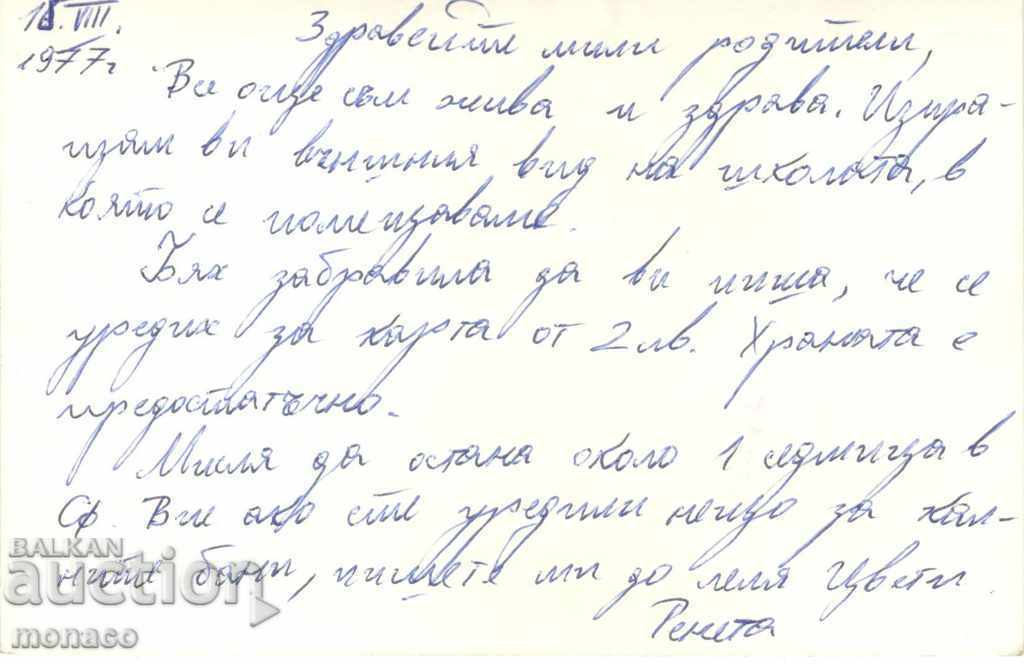 15.VIII.
1977г
Здравейте мили родители,
Все още съм жива и здрава. Изпра-
щам ви външния вид на школата, в
която се помещаваме.
Бях забравила да ви пиша, че се
уредих за карта от 2 лв. Храната е
предостатъчно.
Мисля да остана около 1 седмица в
Сф. Вие ако сте уредили нещо за кал-
ните бани, пишете ми до леля Цвети.
Ренета
BALKAN
auction
monaco